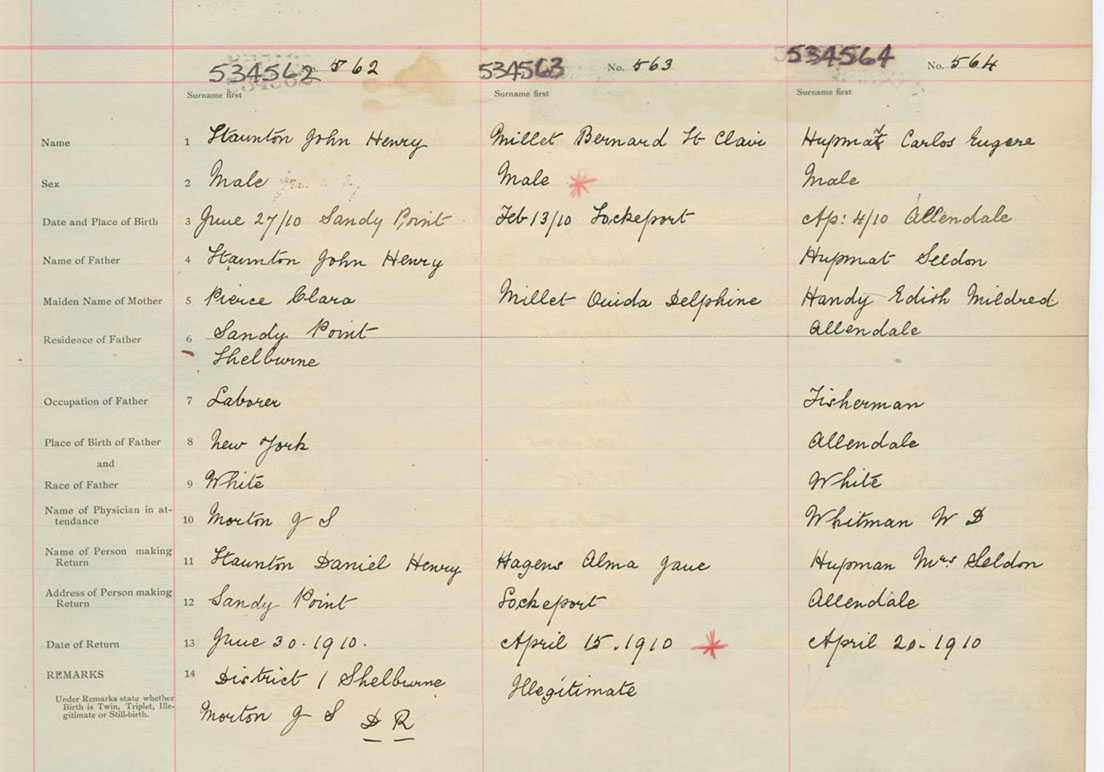 534562 No. 562 534563 No. 563 534564 No. 564
Surname first Surname first Surname first
Name 1 Staunton John Henry Millet Bernard St Clair Hupmat Carlos Eugene
Sex 2 Male Male Male
Date and Place of Birth 3 June 27/10 Sandy Point Feb 13/10 Lockeport Ap: 4/10 Allendale
Name of Father 4 Staunton John Henry Hupmat Seldon
Maiden Name of Mother 5 Pierce Clara Millet Ouida Delphine Handy Edish Mildred
Residence of Father 6 Sandy Point Allendale
Shelburne
Occupation of Father 7 Laborer Fisherman
Place of Birth of Father 8 New York Allendale
and
Race of Father 9 White White
Name of Physician in at-
tendance 10 Morton J S Whitman W D
Name of Person making
Return 11 Staunton Daniel Henry Hagens Alma Jane Hupman Mrs Seldon
Address of Person making
Return 12 Sandy Point Lockeport Allendale
Date of Return 13 June 30. 1910. April 15. 1910 April 20. 1910
REMARKS 14 District 1 Shelburne Illegitimate
Under Remarks state whether
Birth is Twin, Triplet, Ille-
gitimate or Still-birth.
Morton J S D R